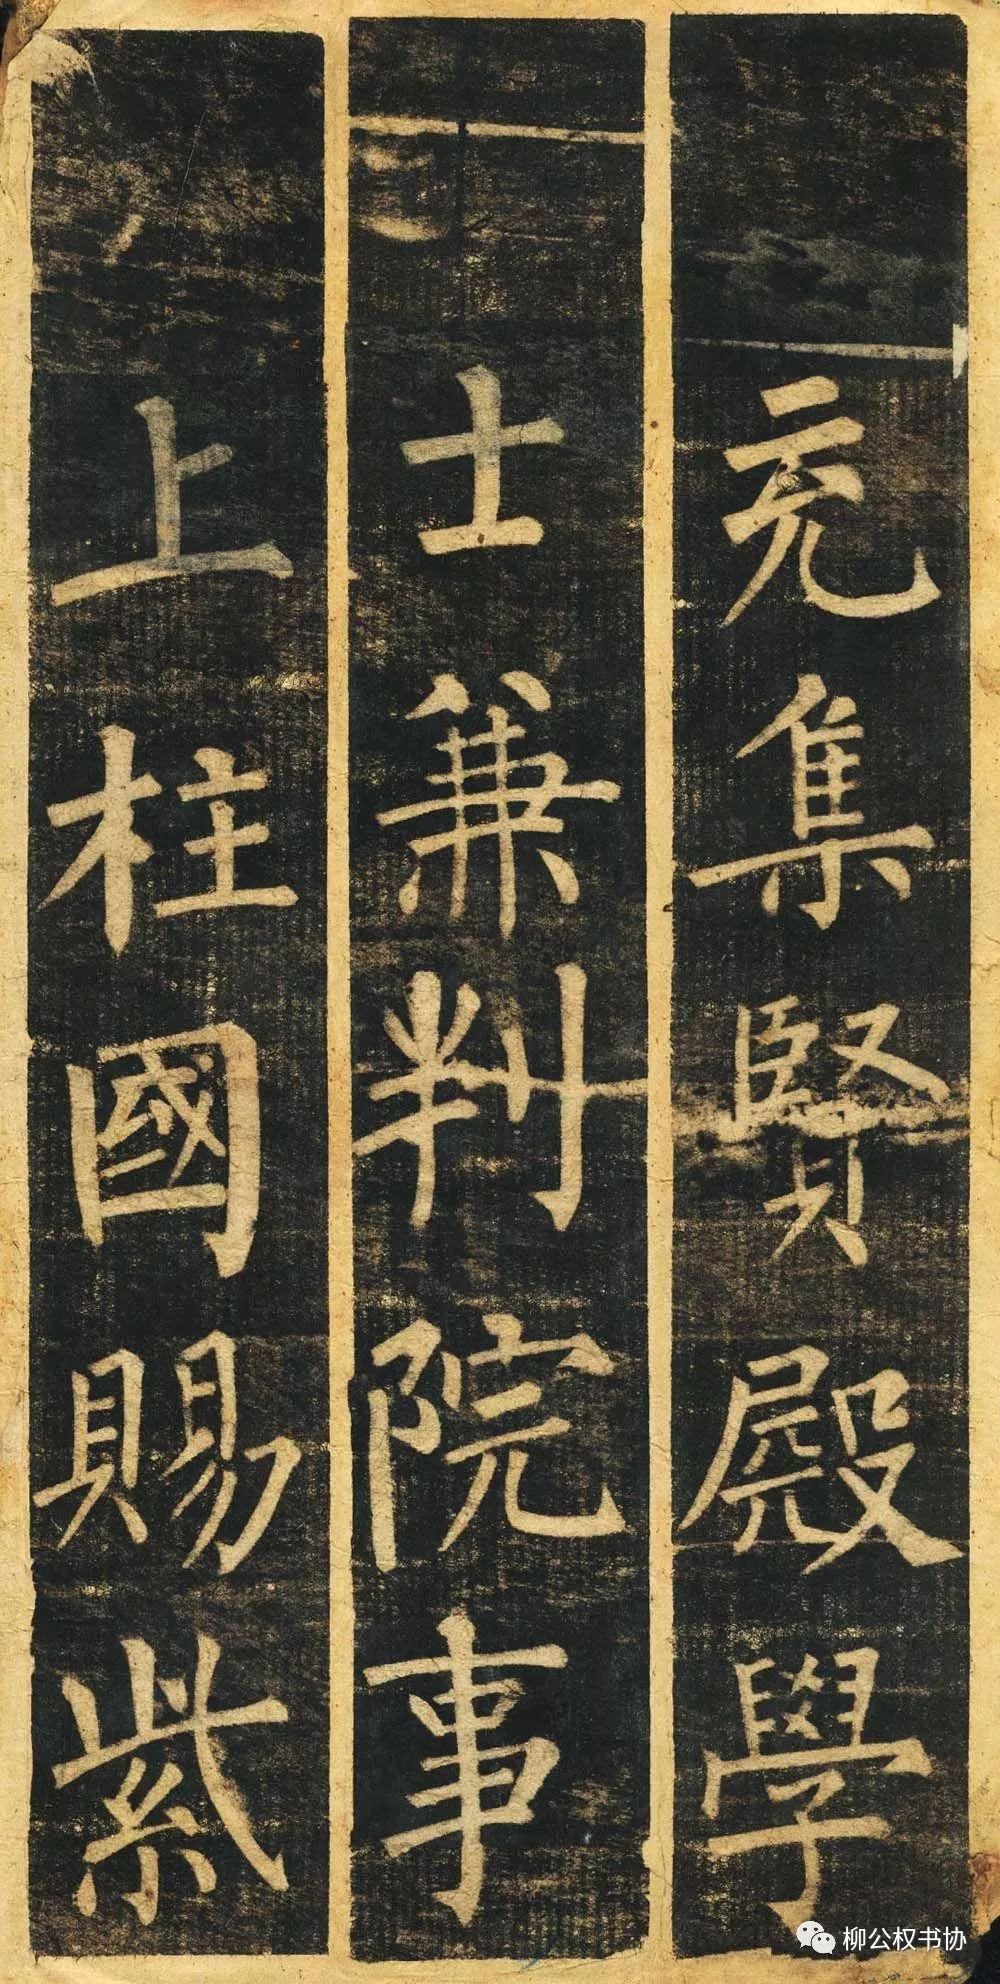 充集賢殿學
士兼判院事
上柱國賜紫
柳公权书协